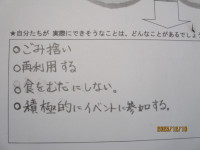 ★自分たちが 実際にできそうなことは、どんなことがあるでしょう
○ごみ捨い
○再利用する
○食をむだにしない。
○積極的にイベントに参加する。